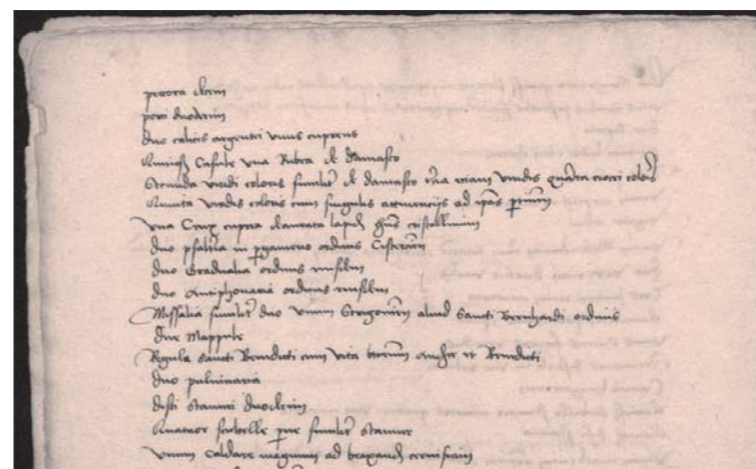 pecora decem
porci duodecim
duo calices argentei unus cupreus
Quinque Casule una Rubea de damasco
Secunda viridi coloris similiter de damasco tercia eciam viridis quarta crocei coloris
Quinta viridis coloris cum singulis attinenciis ad ipsas
una Crux cuprea deaurata lapidem cristallinum
duo psalteria in pergameno ordinis Cistercien
duo Gradualia ordinis
duo Antiphonaria ordinis
Missalia similiter duo unum aliud Sancti Bernhardi ordinis
due Mappule
Regula Sancti Benedicti cum vita et Benedicti
duo pulvinaria
disci stannei duodecim
Quatuor similiter stannee
unum Caldare magnum ad braxandum cerevisiam